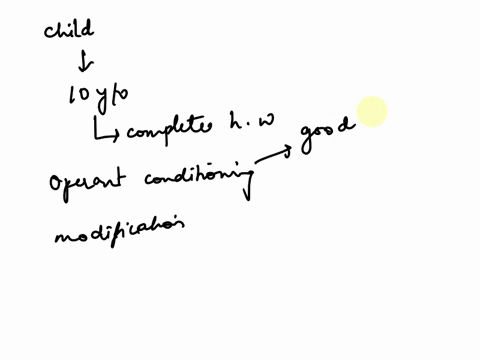 child
10 y/o
complete h.w
good
operant conditioning
modification